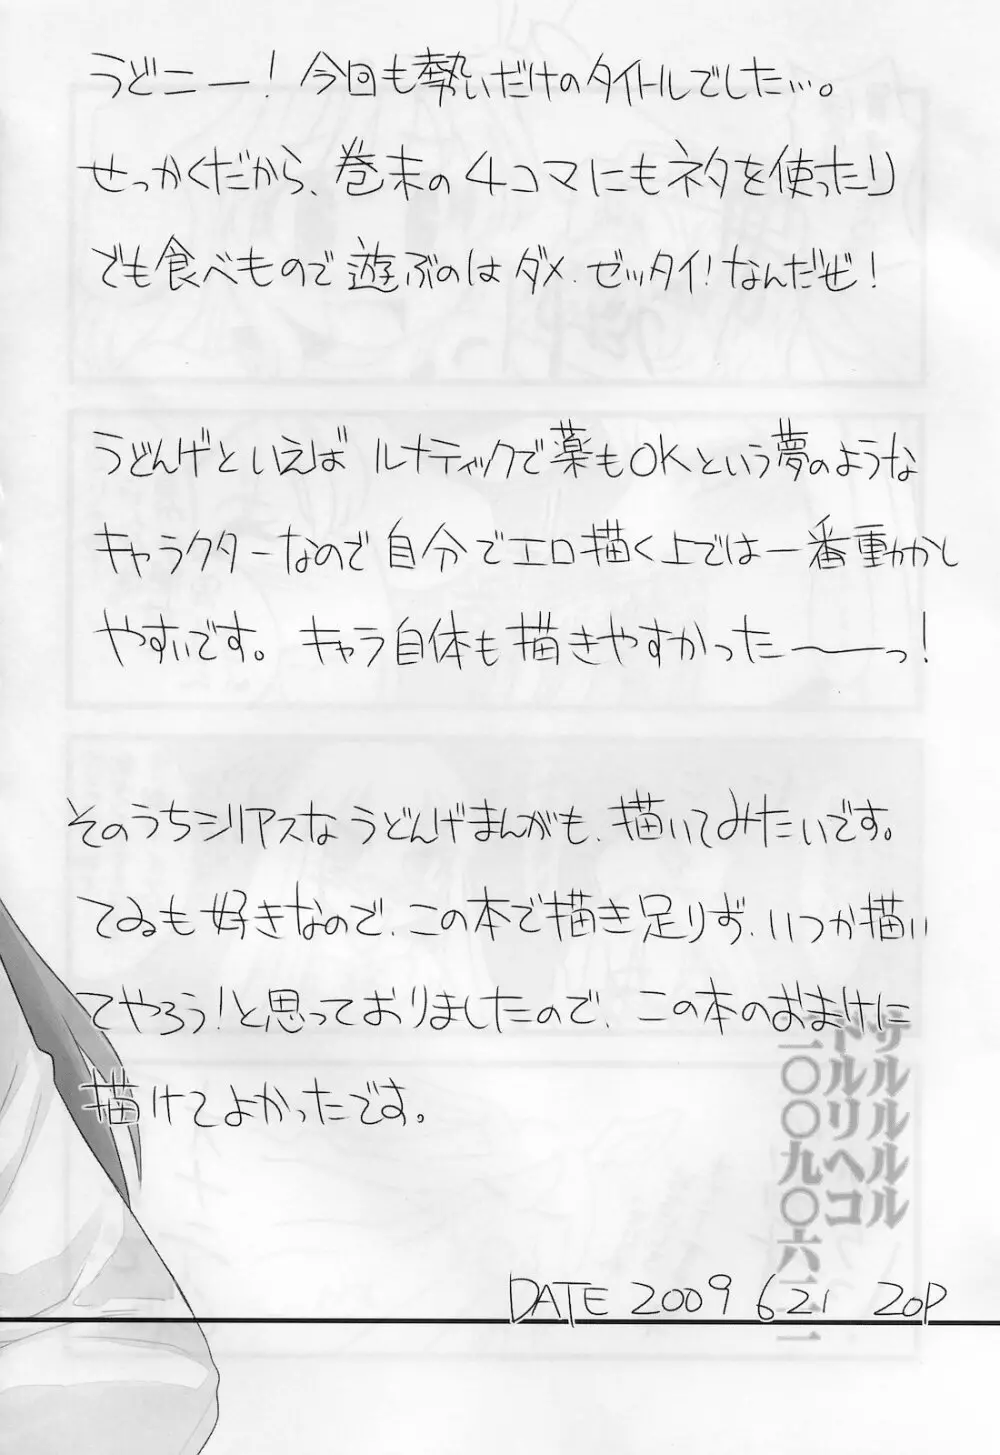 うどニー！今回も勢いだけのタイトルでした…。
せっかくだから、巻末の4コマにもネタを使ったり
でも食べもので遊ぶのはダメ、ゼッタイ！なんだぜ！
うどんげといえばルナティックで薬もOKという夢のような
キャラクターなので自分でエロ描く上では一番動かし
やすいです。キャラ自体も描きやすかった〜ーっ！
そのうちシリアスなうどんげまんがも、描いてみたいです。
てゐも好きなので、この本で描き足りず、いつか描い
てやろう！と思っておりましたので、この本のおまけに
描けてよかったです。
DATE 2009 6 21 20P